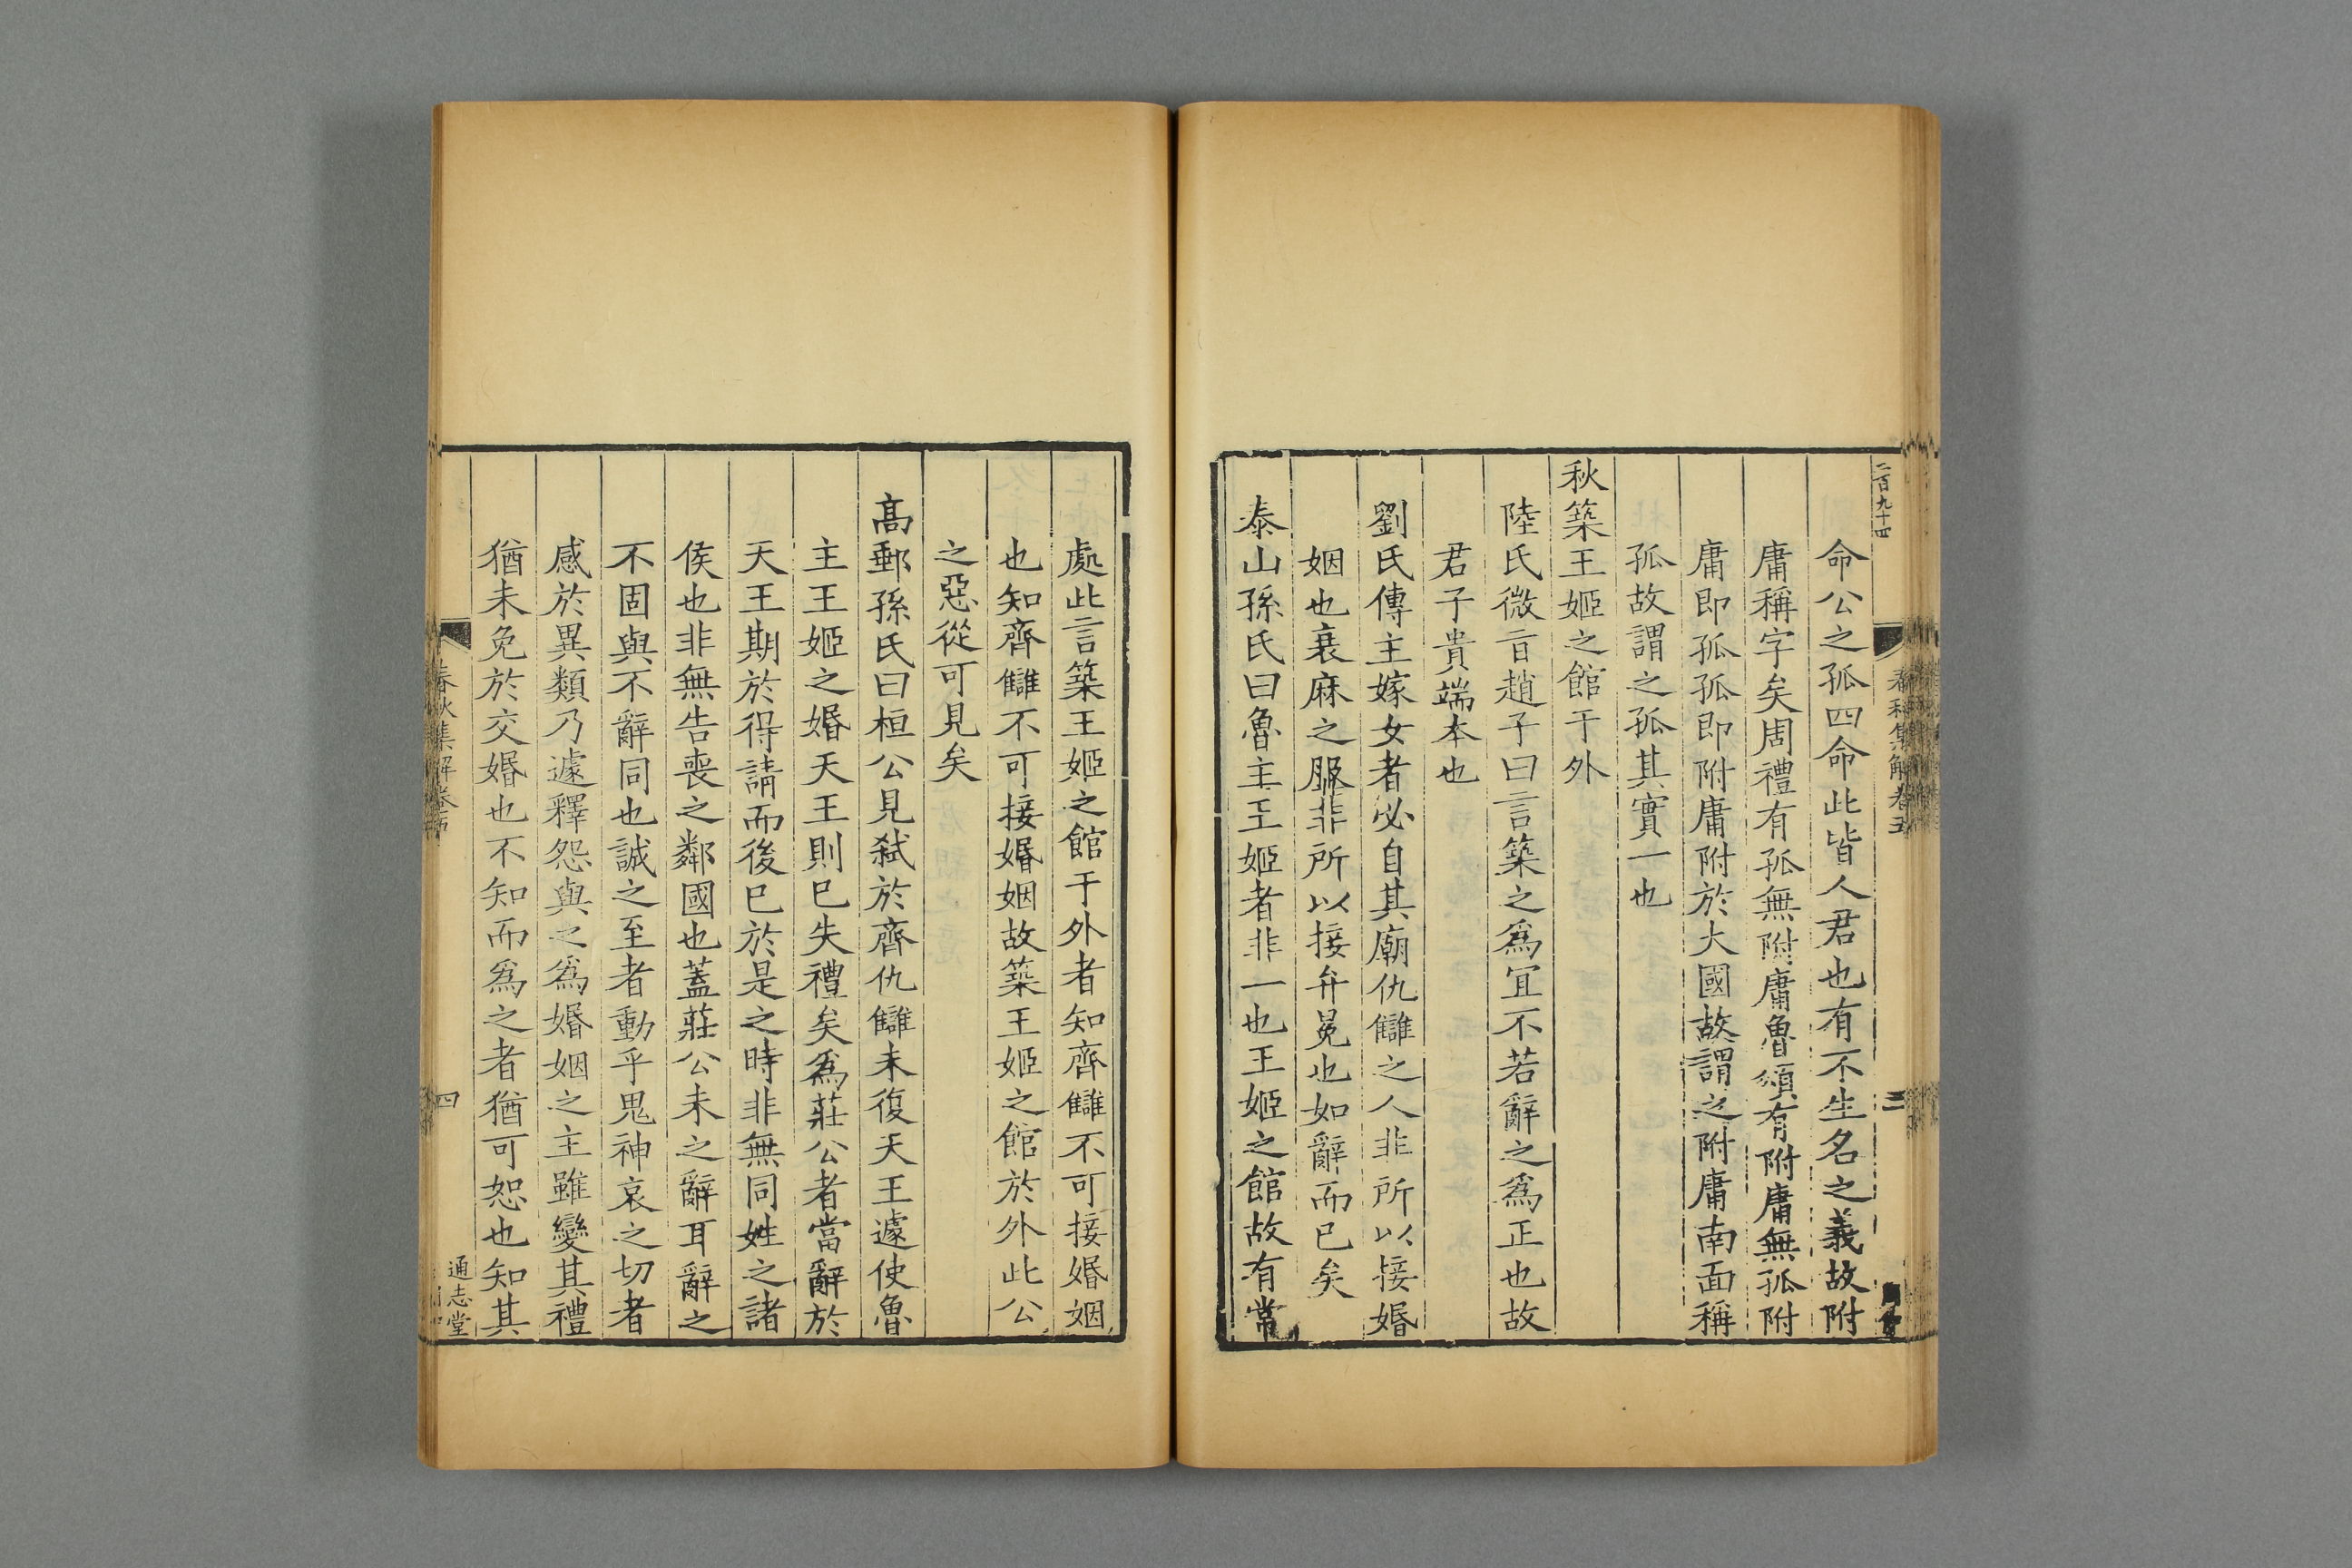 二百九十四
春秋集解卷五
三
命公之孤四命此皆人君也有不生名之義故附
庸稱字矣周禮有孤無附庸魯頌有附庸無孤附
庸即孤孤即附庸附於大國故謂之附庸南面稱
孤故謂之孤其實一也
秋築王姬之館于外
陸氏微旨趙子曰言築之爲宜不若辭之爲正也故
君子貴端本也
劉氏傳主嫁女者必自其廟仇讎之人非所以接婚
姻也衰麻之服非所以接弁冕也如辭而已矣
泰山孫氏曰魯主王姬者非一也王姬之館故有常
處此言築王姬之館于外者知齊讎不可接婚姻
也知齊讎不可接婚姻故築王姬之館於外此公
之惡從可見矣
高郵孫氏曰桓公見弑於齊仇讎未復天王遽使魯
主王姬之婚天王則已失禮矣爲莊公者當辭於
天王期於得請而後已於是之時非無同姓之諸
侯也非無告喪之鄰國也蓋莊公未之辭耳辭之
不固與不辭同也誠之至者動乎鬼神哀之切者
感於異類乃遽釋怨與之爲婚姻之主雖變其禮
猶未免於交婚也不知而爲之者猶可恕也知其
春秋集解卷五
四
通志堂